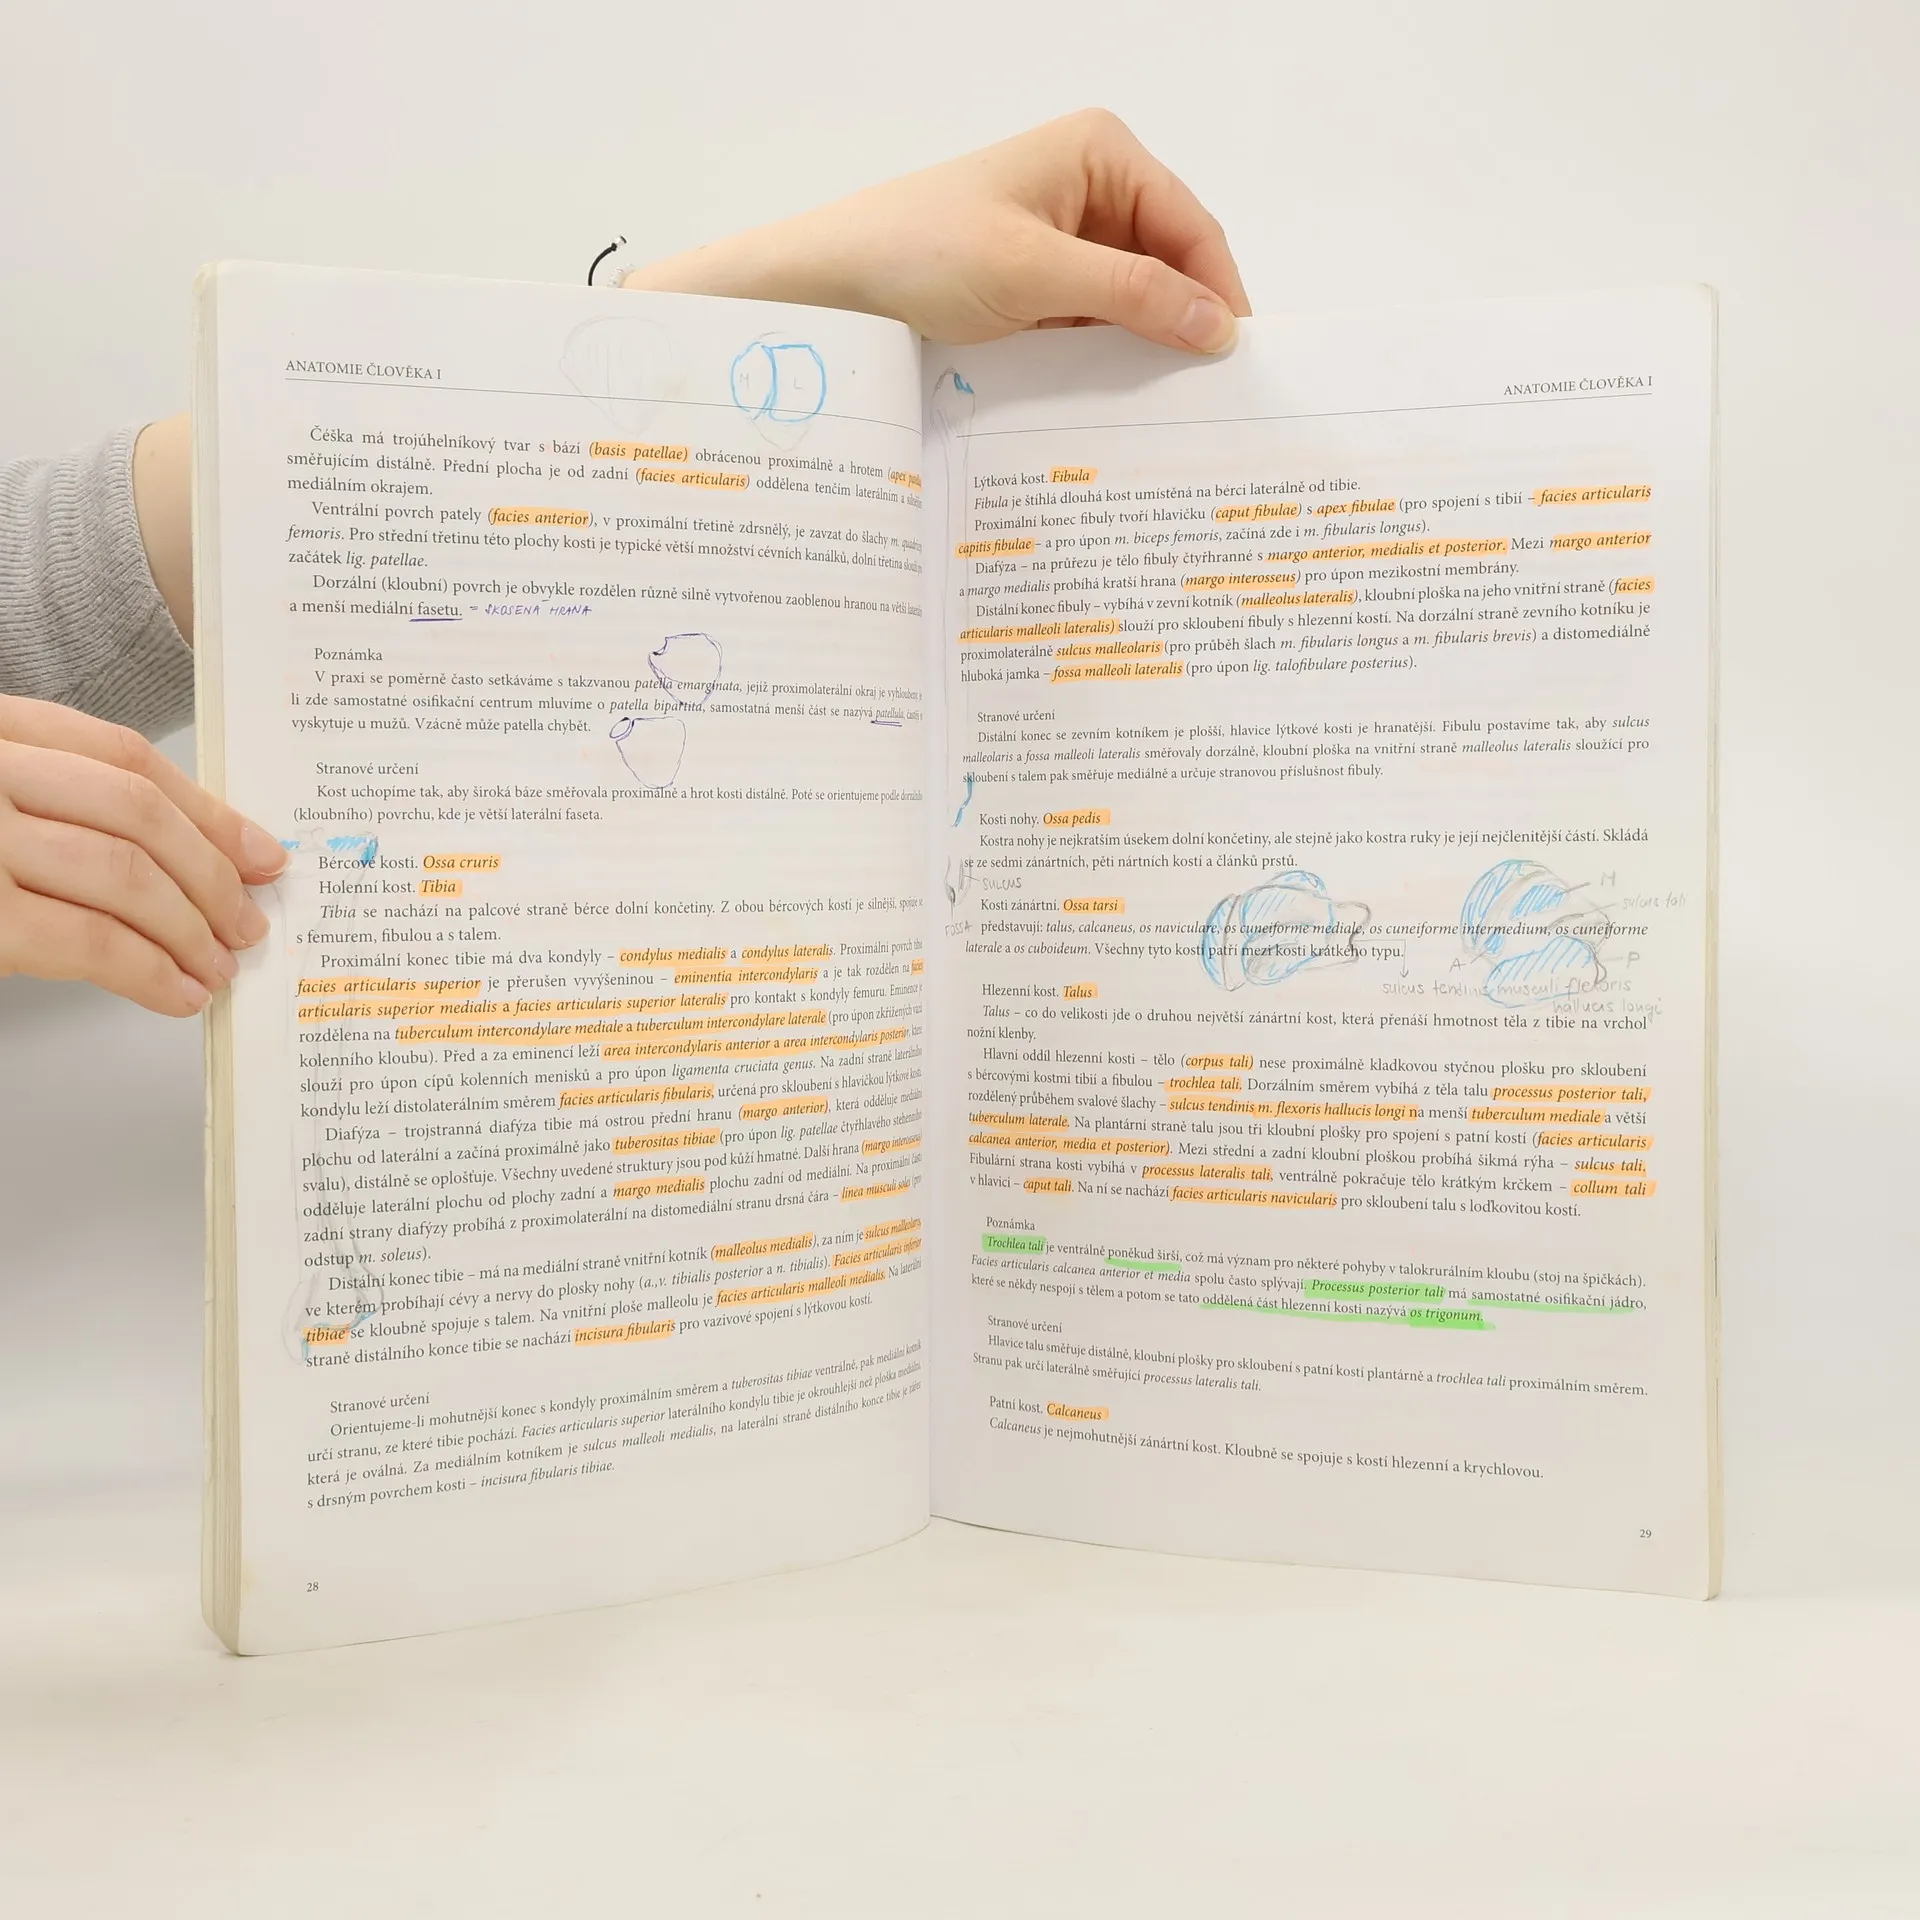 ANATOMIE ČLOVĚKA I
M L
Čéška má trojúhelníkový tvar s bází (basis patellae) obrácenou proximálně a hrotem (apex
směřujícím distálně. Přední plocha je od zadní (facies articularis) oddělena tenčím laterálním a
mediálním okrajem.
Ventrální povrch pately (facies anterior), v proximální třetině zdrsnělý, je zavzat do šlachy m.
femoris. Pro střední třetinu této plochy kosti je typické větší množství cévních kanálků, dolní třetina
začátek lig. patellae.
Dorzální (kloubní) povrch je obvykle rozdělen různě silně vytvořenou zaoblenou hranou na větší
a menší mediální fasetu. = SKOSENÁ HRANA
Poznámka
V praxi se poměrně často setkáváme s takzvanou patella emarginata, jejíž proximolaterální okraj je vyhlouben,
li zde samostatné osifikační centrum mluvíme o patella bipartita, samostatná menší část se nazývá patellula,
vyskytuje u mužů. Vzácně může patella chybět.
Stranové určení
Kost uchopíme tak, aby široká báze směřovala proximálně a hrot kosti distálně. Poté se orientujeme podle
(kloubního) povrchu, kde je větší laterální faseta.
Bércové kosti. Ossa cruris
Holenní kost. Tibia
Tibia se nachází na palcové straně bérce dolní končetiny. Z obou bércových kostí je silnější, spojuje se
s femurem, fibulou a s talem.
Proximální konec tibie má dva kondyly – condylus medialis a condylus lateralis. Proximální povrch
facies articularis superior je přerušen vyvýšeninou – eminentia intercondylaris a je tak rozdělen na facies
articularis superior medialis a facies articularis superior lateralis pro kontakt s kondyly femuru. Eminence je
rozdělena na tuberculum intercondylare mediale a tuberculum intercondylare laterale (pro úpon zkřížených vazů
kolenního kloubu). Před a za eminencí leží area intercondylaris anterior a area intercondylaris posterior,
slouží pro úpon cípů kolenních menisků a pro úpon ligamenta cruciata genus. Na zadní straně laterálního
kondylu leží distolaterálním směrem facies articularis fibularis, určená pro skloubení s hlavičkou lýtkové kosti.
Diafýza – trojstranná diafýza tibie má ostrou přední hranu (margo anterior), která odděluje mediální
plochu od laterální a začíná proximálně jako tuberositas tibiae (pro úpon lig. patellae čtyřhlavého stehenního
svalu), distálně se oplošťuje. Všechny uvedené struktury jsou pod kůží hmatné. Další hrana (margo interosseus)
odděluje laterální plochu od plochy zadní a margo medialis plochu zadní od mediální. Na proximální části
zadní strany diafýzy probíhá z proximolaterální na distomediální stranu drsná čára – linea musculi solei (pro
odstup m. soleus).
Distální konec tibie – má na mediální straně vnitřní kotník (malleolus medialis), za ním je sulcus malleolaris,
ve kterém probíhají cévy a nervy do plosky nohy (a.,v. tibialis posterior a n. tibialis). Facies articularis inferior
tibiae se kloubně spojuje s talem. Na vnitřní ploše malleolu je facies articularis malleoli medialis. Na laterální
straně distálního konce tibie se nachází incisura fibularis pro vazivové spojení s lýtkovou kostí.
Stranové určení
Orientujeme-li mohutnější konec s kondyly proximálním směrem a tuberositas tibiae ventrálně, pak mediální kotník
určí stranu, ze které tibie pochází. Facies articularis superior laterálního kondylu tibie je okrouhlejší než ploška mediální,
která je oválná. Za mediálním kotníkem je sulcus malleoli medialis, na laterální straně distálního konce tibie je zářez
s drsným povrchem kosti – incisura fibularis tibiae.
28
ANATOMIE ČLOVĚKA I
Lýtková kost. Fibula
Fibula je štíhlá dlouhá kost umístěná na bérci laterálně od tibie.
Proximální konec fibuly tvoří hlavičku (caput fibulae) s apex fibulae (pro spojení s tibií – facies articularis
capitis fibulae – a pro úpon m. biceps femoris, začíná zde i m. fibularis longus).
Diafýza – na průřezu je tělo fibuly čtyřhranné s margo anterior, medialis et posterior. Mezi margo anterior
a margo medialis probíhá kratší hrana (margo interosseus) pro úpon mezikostní membrány.
Distální konec fibuly – vybíhá v zevní kotník (malleolus lateralis), kloubní ploška na jeho vnitřní straně (facies
articularis malleoli lateralis) slouží pro skloubení fibuly s hlezenní kostí. Na dorzální straně zevního kotníku je
proximolaterálně sulcus malleolaris (pro průběh šlach m. fibularis longus a m. fibularis brevis) a distomediálně
hluboká jamka – fossa malleoli lateralis (pro úpon lig. talofibulare posterius).
Stranové určení
Distální konec se zevním kotníkem je plošší, hlavice lýtkové kosti je hranatější. Fibulu postavíme tak, aby sulcus
malleolaris a fossa malleoli lateralis směřovaly dorzálně, kloubní ploška na vnitřní straně malleolus lateralis sloužící pro
skloubení s talem pak směřuje mediálně a určuje stranovou příslušnost fibuly.
Kosti nohy. Ossa pedis
Kostra nohy je nejkratším úsekem dolní končetiny, ale stejně jako kostra ruky je její nejčlenitější částí. Skládá
se ze sedmi zánártních, pěti nártních kostí a článků prstů.
SULCUS
M
sulcus tali
Kosti zánártní. Ossa tarsi
FOSSA
představují: talus, calcaneus, os naviculare, os cuneiforme mediale, os cuneiforme intermedium, os cuneiforme
laterale a os cuboideum. Všechny tyto kosti patří mezi kosti krátkého typu.
A
P
sulcus tendinis musculi flexoris
hallucis longi
Hlezenní kost. Talus
Talus – co do velikosti jde o druhou největší zánártní kost, která přenáší hmotnost těla z tibie na vrchol
nožní klenby.
Hlavní oddíl hlezenní kosti – tělo (corpus tali) nese proximálně kladkovou styčnou plošku pro skloubení
s bércovými kostmi tibií a fibulou – trochlea tali. Dorzálním směrem vybíhá z těla talu processus posterior tali,
rozdělený průběhem svalové šlachy – sulcus tendinis m. flexoris hallucis longi na menší tuberculum mediale a větší
tuberculum laterale. Na plantární straně talu jsou tři kloubní plošky pro spojení s patní kostí (facies articularis
calcanea anterior, media et posterior). Mezi střední a zadní kloubní ploškou probíhá šikmá rýha – sulcus tali.
Fibulární strana kosti vybíhá v processus lateralis tali, ventrálně pokračuje tělo krátkým krčkem – collum tali
v hlavici – caput tali. Na ní se nachází facies articularis navicularis pro skloubení talu s loďkovitou kostí.
Poznámka
Trochlea tali je ventrálně poněkud širší, což má význam pro některé pohyby v talokrurálním kloubu (stoj na špičkách).
Facies articularis calcanea anterior et media spolu často splývají. Processus posterior tali má samostatné osifikační jádro,
které se někdy nespojí s tělem a potom se tato oddělená část hlezenní kosti nazývá os trigonum.
Stranové určení
Hlavice talu směřuje distálně, kloubní plošky pro skloubení s patní kostí plantárně a trochlea tali proximálním směrem.
Stranu pak určí laterálně směřující processus lateralis tali.
Patní kost. Calcaneus
Calcaneus je nejmohutnější zánártní kost. Kloubně se spojuje s kostí hlezenní a krychlovou.
29